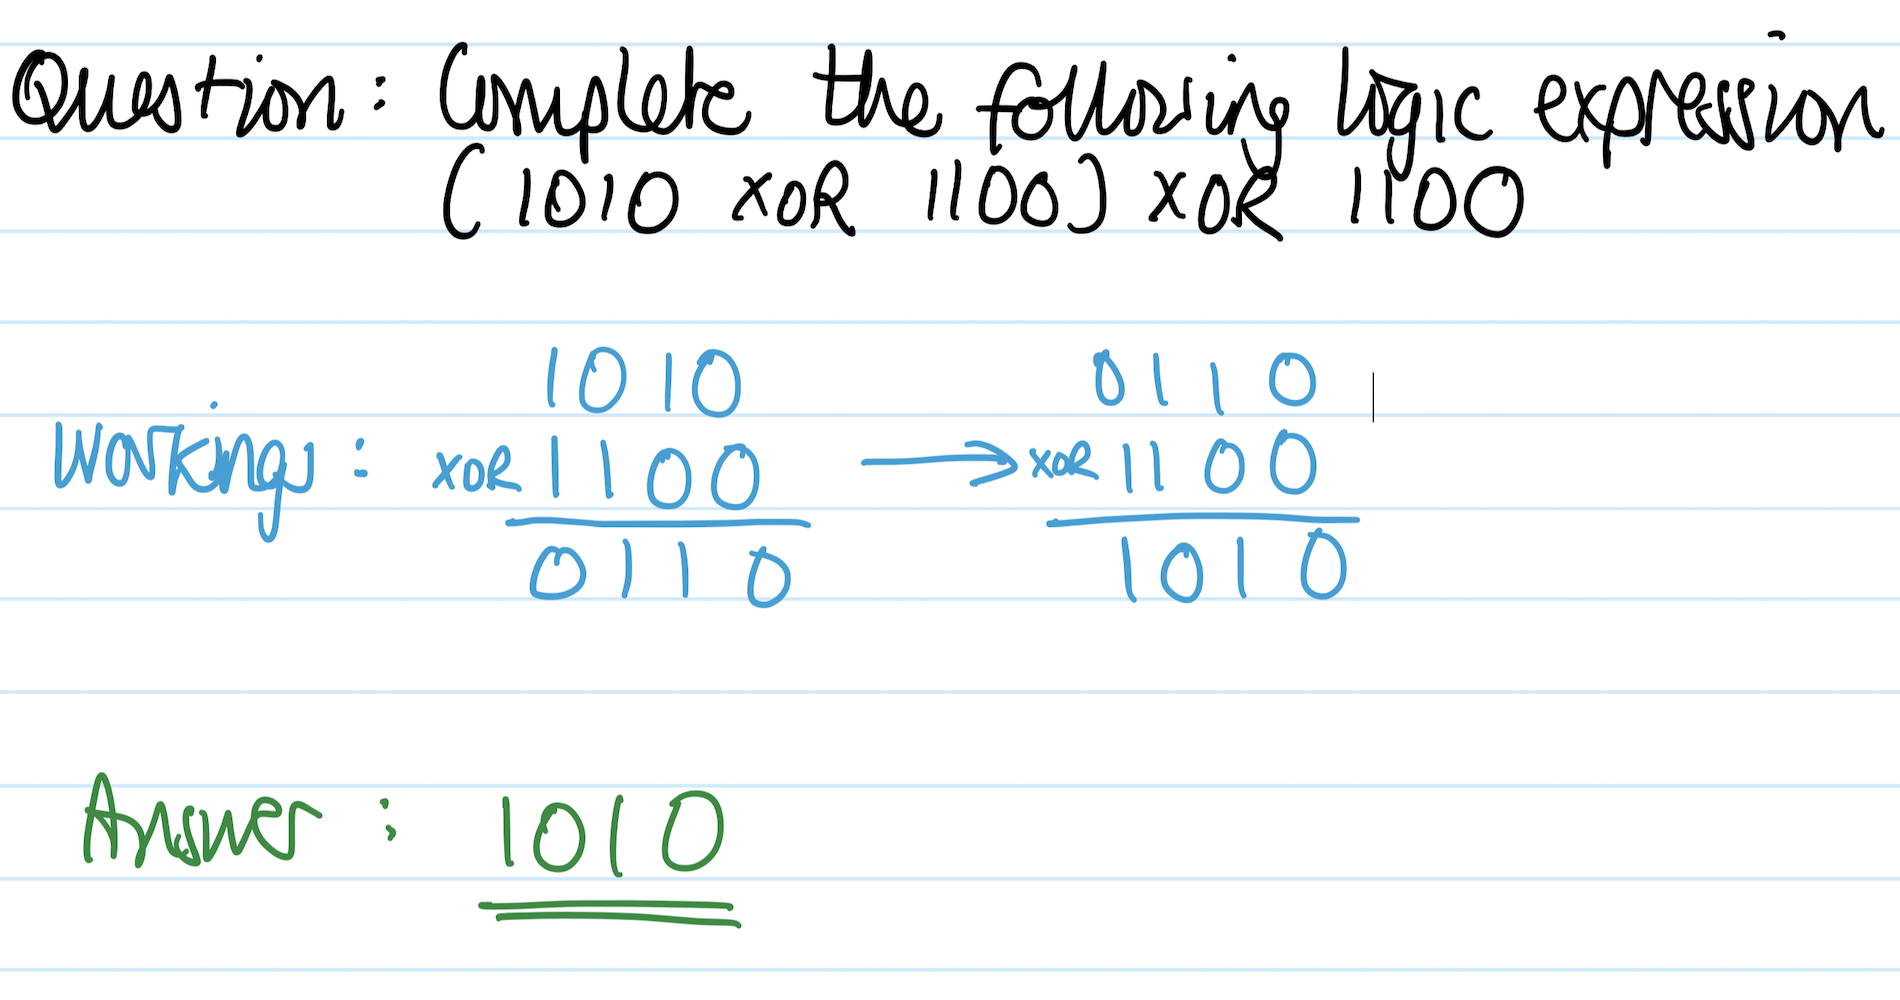 Question: Complete the following logic expression
(1010 XOR 1100) XOR 1100
1010 0110
Workings: XOR 1100 → XOR 1100
0110 1010
Answer: 1010